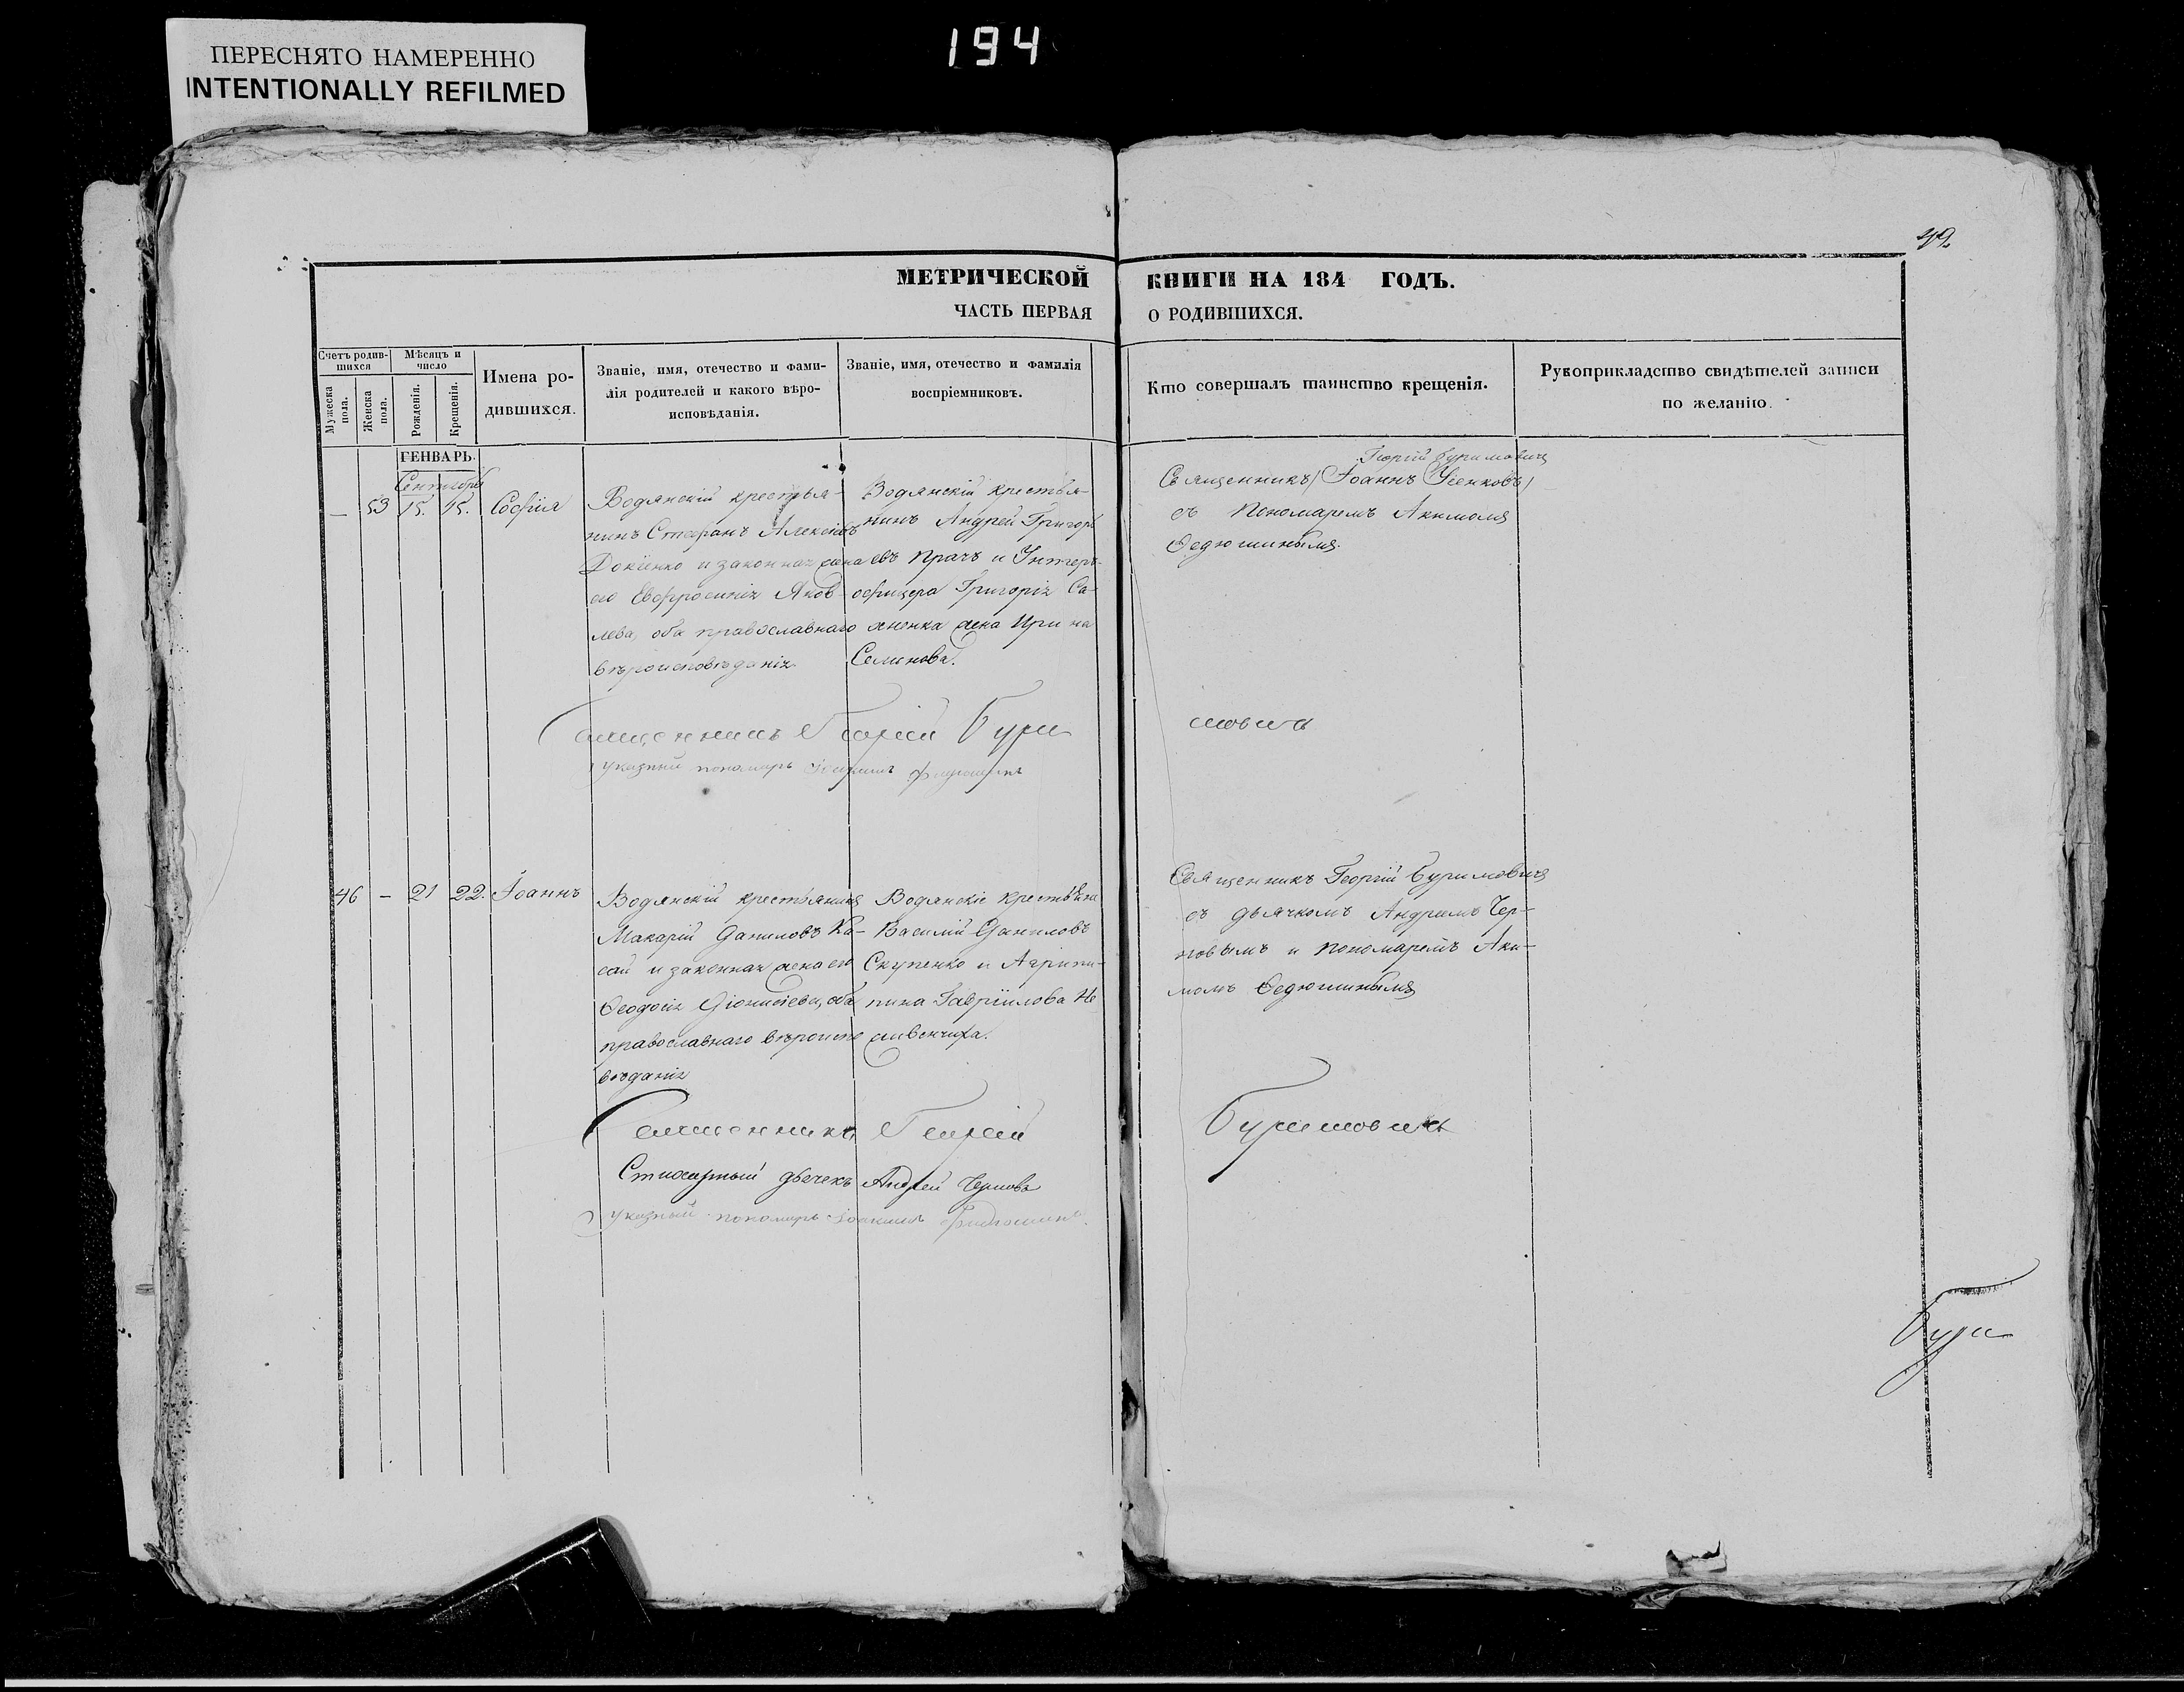 ПЕРЕСНЯТО НАМЕРЕННО
INTENTIONALLY REFILMED
194
МЕТРИЧЕСКОЙ КНИГИ НА 184 ГОДЪ.
ЧАСТЬ ПЕРВАЯ О РОДИВШИХСЯ.
Счетъ родившихся
Мужеска пола.
Женска пола.
Мѣсяцъ и число
Рожденія.
Крещенія.
Имена родившихся.
Званіе, имя, отечество и фами-
лія родителей и какого вѣро-
исповѣданія.
Званіе, имя, отечество и фамилія
воспріемниковъ.
Кто совершалъ таинство крещенія.
Рукоприкладство свидѣтелей записи
по желанію.
ГЕНВАРЬ.
Сентябрь
— 53 15. 15. Софія
Водянскій крестья-
нинъ Стефанъ Алексіевъ
и законная жена
его Евфросинія Яков-
лева, оба православнаго
вѣроисповѣданія
Водянскій крестья-
нинъ Андрей Григорі
евъ Прачъ и Унтеръ-
офицера Григорія Са-
жена Ирина
Семенова.
Георгій Буримовичъ
Священникъ Іоаннъ
съ Пономаремъ Акимомъ
Ѳедюшинымъ.
Священникъ Георгій Бури
мовичъ
указный пономарь Іоакимъ
46 — 21 22. Іоаннъ
Водянскій крестьянинъ
Макарій Даниловъ Ко-
сай и законная жена его
Ѳеодосія Діонисіева, оба
православнаго вѣроиспо
вѣданія
Водянскіе крестьяне
Василій Даниловъ
Скупенко и Агрипи-
пина Гавріилова Не
сливенчиха.
Священникъ Георгій Буримовичъ
съ дьячкомъ Андреемъ Чер-
новымъ и пономаремъ Аки-
момъ Ѳедюшинымъ
Священникъ Георгій
Буримовичъ
Стихарный дьячекъ Андрей Черновъ
указный пономарь Іоакимъ Федюшинъ
Бури